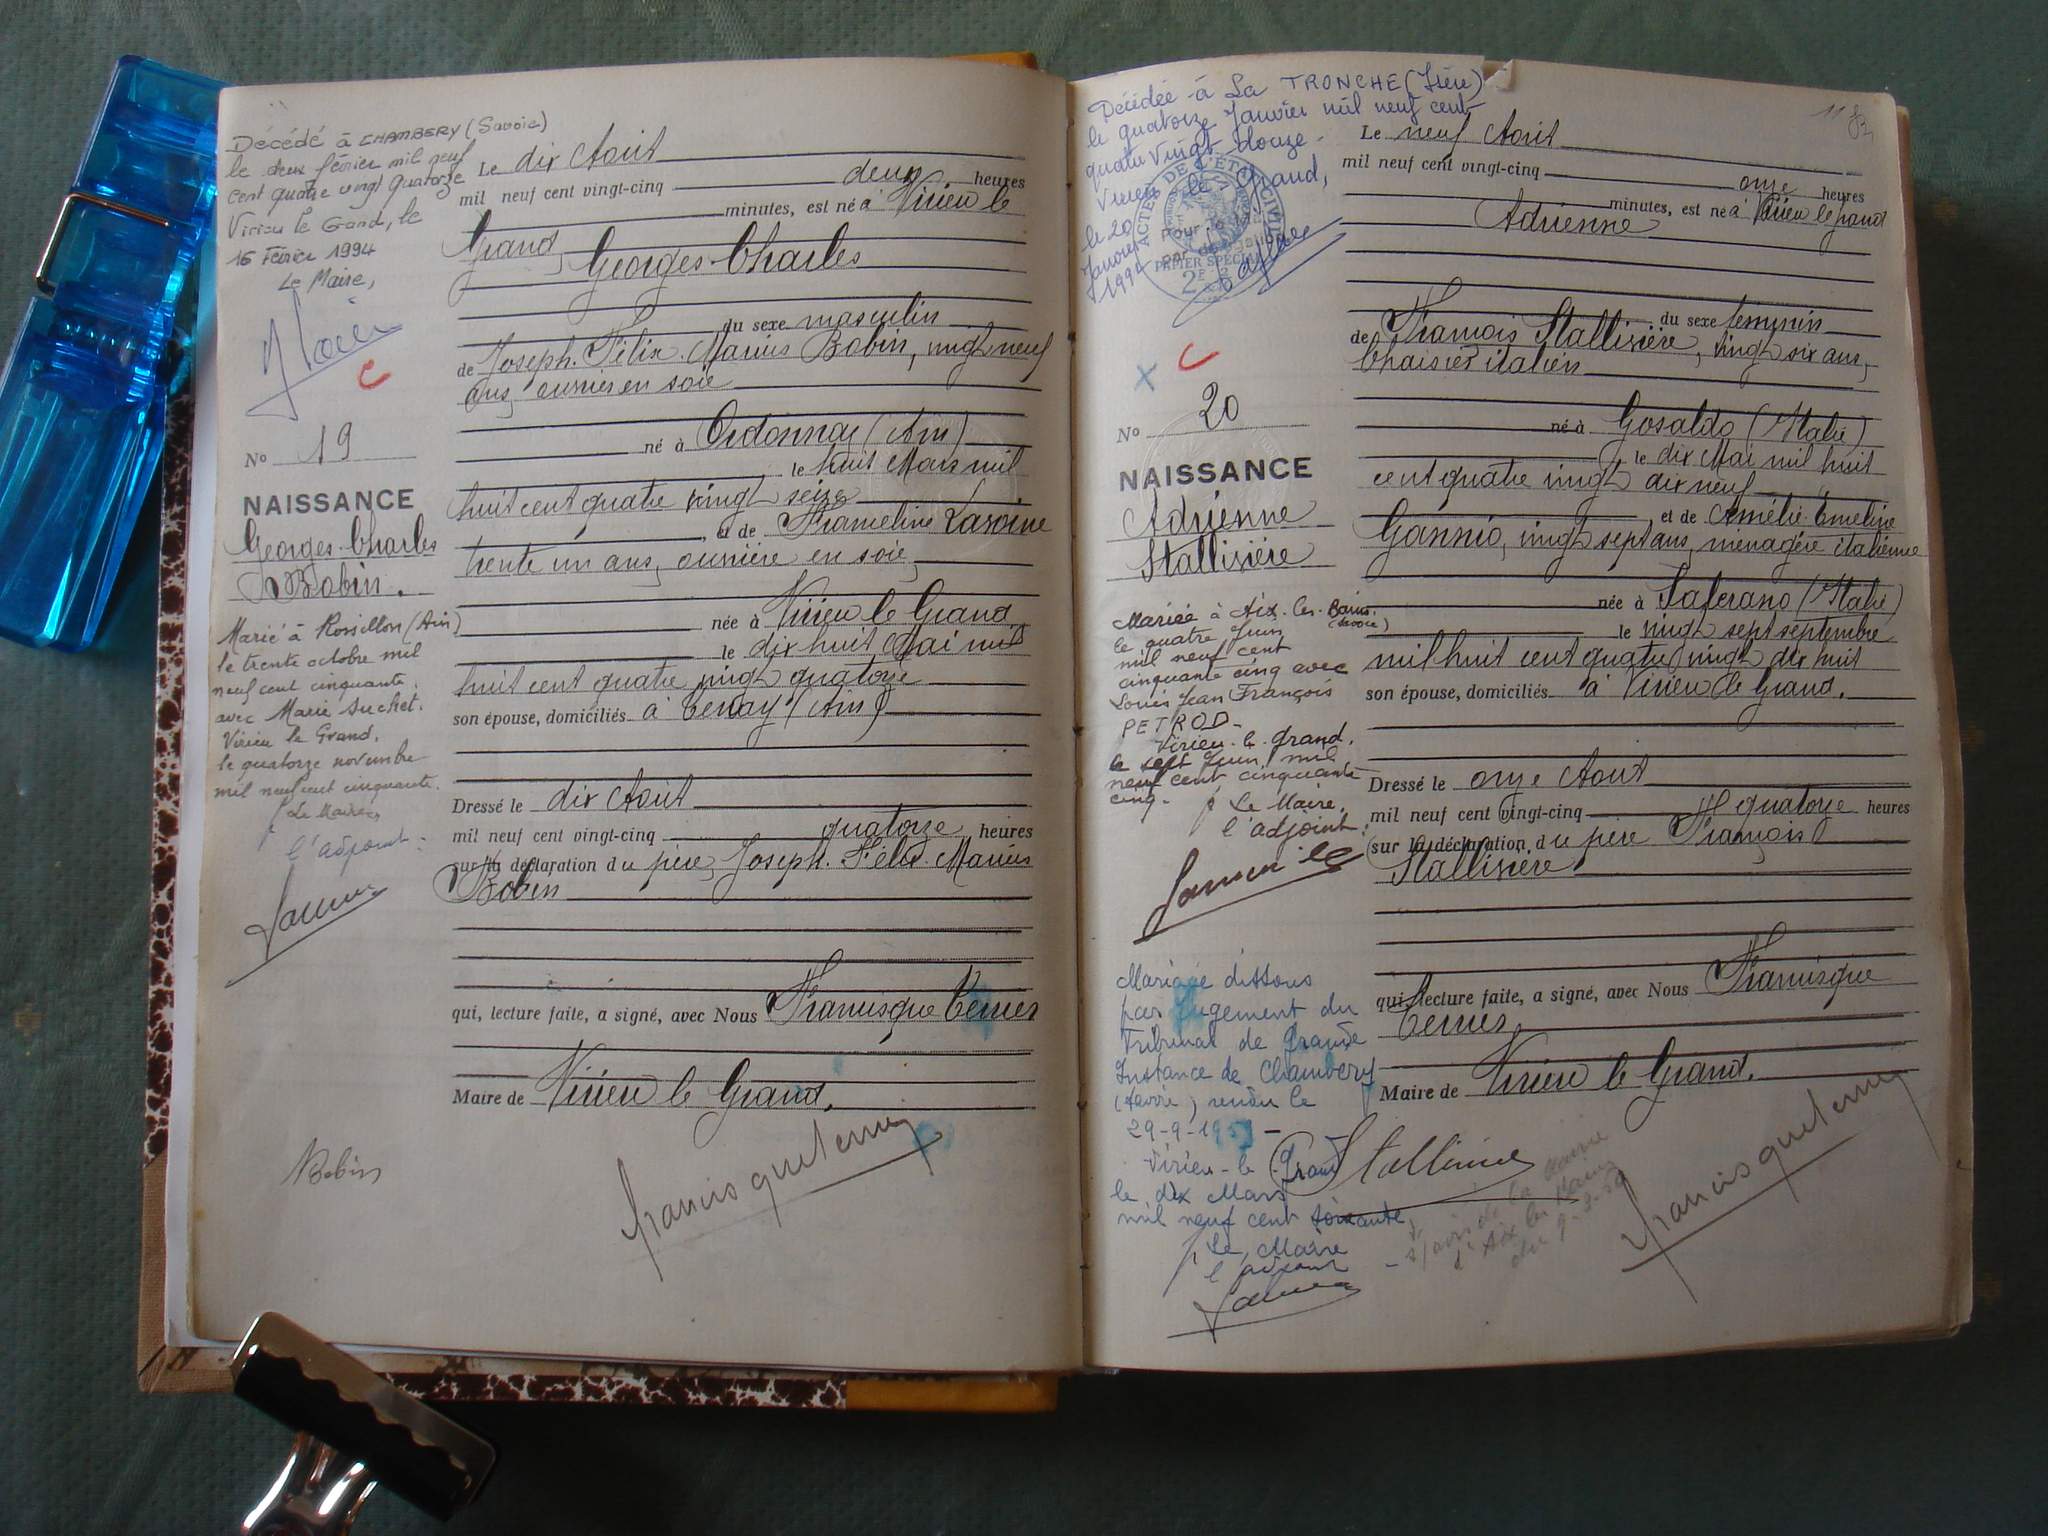 Décédé à CHAMBERY (Savoie)
le deux février mil neuf
cent quatre vingt quatorze
Virieu le Grand, le
16 Février 1994
Le Maire,
C
No 19
NAISSANCE
Georges Charles
Bobin.
Marié à Rossillon (Ain)
le trente octobre mil
neuf cent cinquante.
avec Marie Suchet.
Virieu le Grand,
le quatorze novembre
mil neuf cent cinquante.
p Le Maire,
l'adjoint :
Le dix Août
mil neuf cent vingt-cinq deux heures
minutes, est né à Virieu le
Grand, Georges Charles
du sexe masculin
de Joseph. Félix. Marius Bobin, vingt neuf
ans, ouvrier en soie
né à Ordonnaz (Ain)
le huit Mars mil
huit cent quatre vingt seize
, et de Frameline Lavoine
trente un ans, ouvrière en soie,
née à Virieu le Grand
le dix huit Mai mil
huit cent quatre vingt quatorze
son épouse, domiciliés à Tenay (Ain)
Dressé le dix Août
mil neuf cent vingt-cinq quatorze heures
sur la déclaration du père, Joseph. Félix. Marius
Bobin
qui, lecture faite, a signé, avec Nous Francisque Terrier
Maire de Virieu le Grand.
Bobin
Décédée à La TRONCHE (Isère)
le quatorze Janvier mil neuf cent
quatre vingt douze -
Virieu le Grand,
le 20
Janvier
1992
ACTES DE L'ÉTAT CIVIL
PAPIER SPÉCIAL
X C
No 20
NAISSANCE
Adrienne
Stallivière
Mariée à Aix-les-Bains.
(Savoie)
le quatre Juin
mil neuf cent
cinquante cinq avec
Louis Jean François
PETROD-
Virieu-le-grand.
le sept Juin mil
neuf cent cinquante
cinq-
p Le Maire,
l'adjoint :
Mariage dissous
par jugement du
Tribunal de Grande
Instance de Chambéry
(Savoie) rendu le
Virieu-le-Grand
le dix Mars
mil neuf cent soixante,
p Le Maire
l'adjoint
11
Le neuf Août
mil neuf cent vingt-cinq onze heures
minutes, est né à Virieu le Grand
Adrienne
du sexe féminin
de François Stallivière, vingt six ans,
Chaisier italien
né à Gosaldo (Italie)
le dix Mai mil huit
cent quatre vingt dix neuf
, et de Amélie Emeline
Gannio, vingt sept ans, ménagère italienne
née à Saferano (Italie)
le vingt sept septembre
mil huit cent quatre vingt dix huit
son épouse, domiciliés à Virieu le Grand.
Dressé le onze Août
mil neuf cent vingt-cinq quatorze heures
sur la déclaration du père François
Stallivière
qui, lecture faite, a signé, avec Nous Francisque
Terrier
Maire de Virieu le Grand.
Stallivière
s/avis de la Mairie
d'Aix les Bains